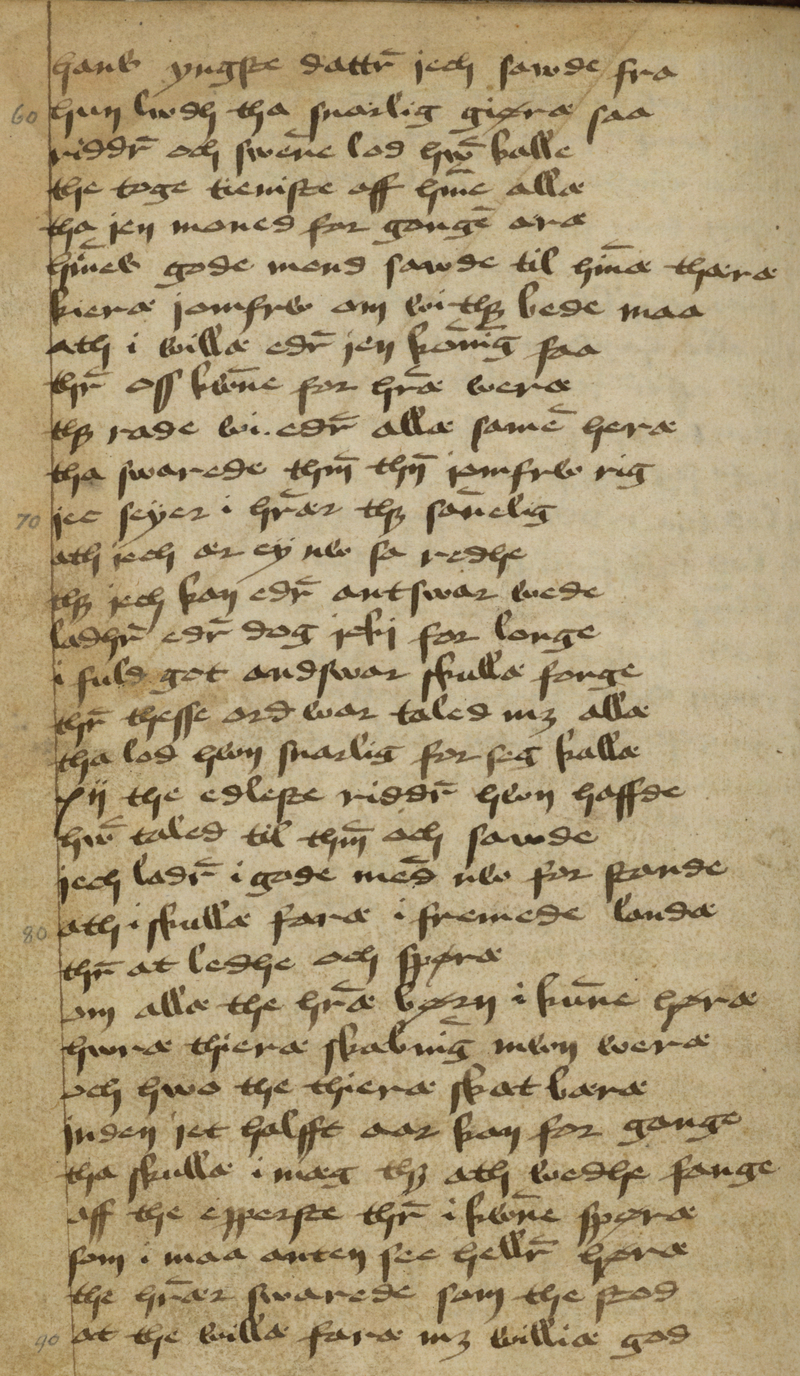 hans yngste dattr̄ jech sawde fra
60 hun lwdh tha snarlig giøræ saa
riddr̄ och swēne lod hw̄ kalle
the toge tieniste aff hīne allæ
tha jen moned for gongē aræ
hīnes gode mend sawde til hīnæ thæræ
kieræ jomfrw om wi thꝫ bede maa
ath i willæ edr̄ jen konnīg faa
thr̄ oss kwn̄e for hr̄æ weræ
thꝫ rade wi edr̄ allæ samē heræ
tha swarede thm̄ thn̄ jomfrw rig
70 jec seyer i hr̄ær thꝫ san̄elig
ath jech ær ey nw sa redhe
thꝫ jech kan edr̄ antswar wede
ladhr̄ edr̄ dog jcki for longe
i fuld got andswar skullæ fonge
thr̄ thesse ord war taled mꝫ allæ
tha lod hwn snarlig for seg kallæ
xij the edleste riddr̄ hwn haffde
hw̄ taled til thm̄ och sawde
jech ladr̄ i gode mēd nw for stande
80 ath i skullæ faræ i fremede landæ
thr̄ at ledhe och spøræ
om allæ the hr̄æ børn i kun̄e høræ
hwræ thieræ skabnīg mwn weræ
och hwo the thieræ skat bæræ
inden jet halfft aar kan for gange
tha skullæ i mæg thꝫ ath wedhe fange
aff the epperste thr̄ i kwn̄e spøræ
som i maa anten see hellr̄ høræ
the hr̄ær swarede som the stod
90 at the willæ faræ mꝫ williæ god